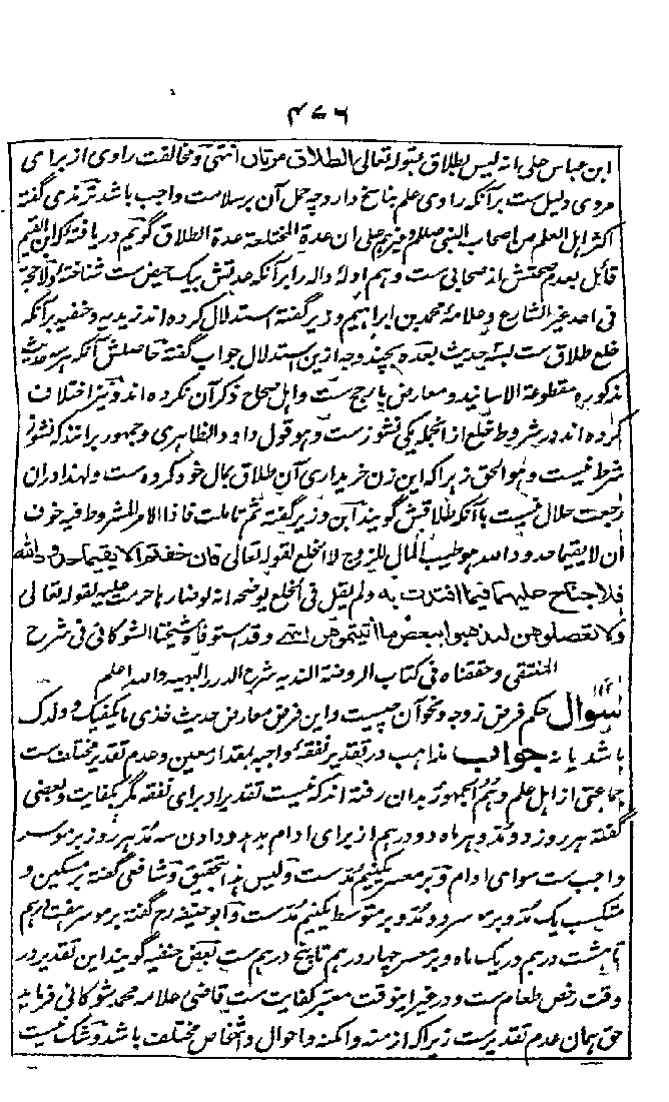 ۴۷۶
ابن عباس علی انه لیس بطلاق بقوله تعالی الطلاق مرتان انتهی و مخالفت راوی از برای
مروی دلیل ست بر آنکه راوی علم بناسخ دارد چه حمل آن بر سلامت واجب باشد ترمذی گفته
اکثر اهل العلم من اصحاب النبی صللم وغیرهم علی ان عدة المختلعة عدة الطلاق گویم دریافته که ابن القیم
قائل بعدم صحتش از صحابی ست و هم ادلهٔ داله را بر آنکه عدتش بیک حیض ست شناخته ولا حجة
فی احد غیر الشارع و علامهٔ محمد بن ابراهیم وزیر گفته استدلال کرده اند زیدیه و حنفیه بر آنکه
خلع طلاق ست بسه حدیث بعده بچند وجه ازین استدلال جواب گفته حاصلش آنکه هر سه حدیث
مذکوره مقطوعة الاسانید و معارض بارجح ست و اهل صحاح ذکر آن نکرده اند و نیز اختلاف
کرده اند در شروط خلع از انجمله یکی نشوز ست و هو قول داود الظاهری و جمهور برانند که نشوز
شرط نیست و هو الحق زیرا که این زن خریداری آن طلاق بمال خود کرده ست و لهذا دران
رجعت حلال نیست با آنکه طلاقش گویند ابن وزیر گفته ثم تأملت فاذا الامر المشروط فیه خوف
ان لا یقیما حدود الله هو طیب المال للزوج لا الخلع لقوله تعالی فان خفتم الا یقیما حدود الله
فلا جناح علیهما فیما افتدت به ولم یقل فی الخلع یوضحه انه لو ضارها حرمت علیه لقوله تعالی
ولا تعضلوهن لتذهبوا ببعض ما اتیتموهن انتهی وقد استوفاه شیخنا الشوکانی فی شرح
المنتقی وحققناه فی کتاب الروضة الندیه شرح الدرر البهیه والله اعلم
سوال حکم فرض زوجه و نحو آن چیست و این فرض معارض حدیث خذی ما یکفیک و ولدک
باشد یا نه جواب مذاهب در تقدیر نفقهٔ واجبه بمقدار معین و عدم تقدیر مختلف ست
جماعتی از اهل علم و هُمُ الجمهور بدان رفته اند که نیست تقدیر او برای نفقه مگر بکفایت و بعضی
گفته هر روز دو مُد و هر ماه دو درهم از برای ادام بدهد و دادن سه مُد هر روز بر موسر
واجب ست سوای ادام و بر معسر یکنیم مُد ست ولیس هذا بتحقیق و شافعی گفته بر مسکین و
متکسب یک مُد و بر موسر دو مُد و بر متوسط یکنیم مُد ست و ابوحنیفه رح گفته بر موسر هفت درهم
تا هشت درهم در یک ماه و بر معسر چهار درهم تا پنج درهم ست بعض حنفیه گویند این تقدیر در
وقت رخص طعام ست و در غیر این وقت معتبر کفایت ست قاضی علامه محمد شوکانی فرماید
حق همان عدم تقدیر ست زیرا که ازمنه و امکنه و احوال و اشخاص مختلف باشد و شک نیست